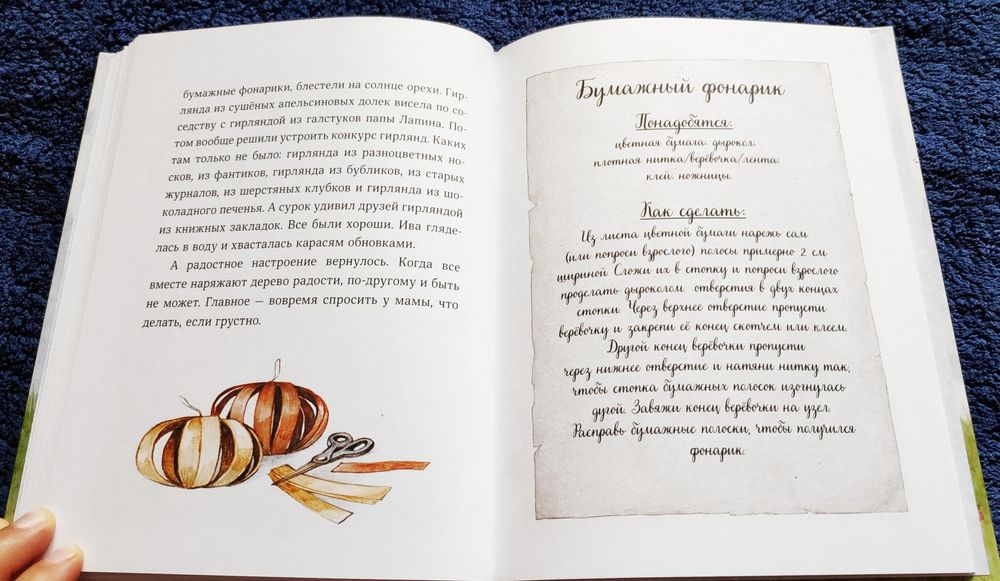 бумажные фонарики, блестели на солнце орехи. Гир-
лянда из сушёных апельсиновых долек висела по со-
седству с гирляндой из галстуков папы Лапина. По-
том вообще решили устроить конкурс гирлянд. Каких
там только не было: гирлянда из разноцветных но-
сков, из фантиков, гирлянда из бубликов, из старых
журналов, из шерстяных клубков и гирлянда из шо-
коладного печенья. А сурок удивил друзей гирляндой
из книжных закладок. Все были хороши. Ива гляде-
лась в воду и хвасталась карасям обновками.
А радостное настроение вернулось. Когда все
вместе наряжают дерево радости, по-другому и быть
не может. Главное — вовремя спросить у мамы, что
делать, если грустно.
Бумажный фонарик
Понадобятся:
цветная бумага; дырокол;
плотная нитка/верёвочка/лента;
клей; ножницы.
Как сделать:
Из листа цветной бумаги нарежь сам
(или попроси взрослого) полосы примерно 2 см
шириной. Сложи их в стопку и попроси взрослого
проделать дыроколом отверстия в двух концах
стопки. Через верхнее отверстие пропусти
верёвочку и закрепи её конец скотчем или клеем.
Другой конец верёвочки пропусти
через нижнее отверстие и натяни нитку так,
чтобы стопка бумажных полосок изогнулась
дугой. Завяжи конец верёвочки на узел.
Расправь бумажные полоски, чтобы получился
фонарик.